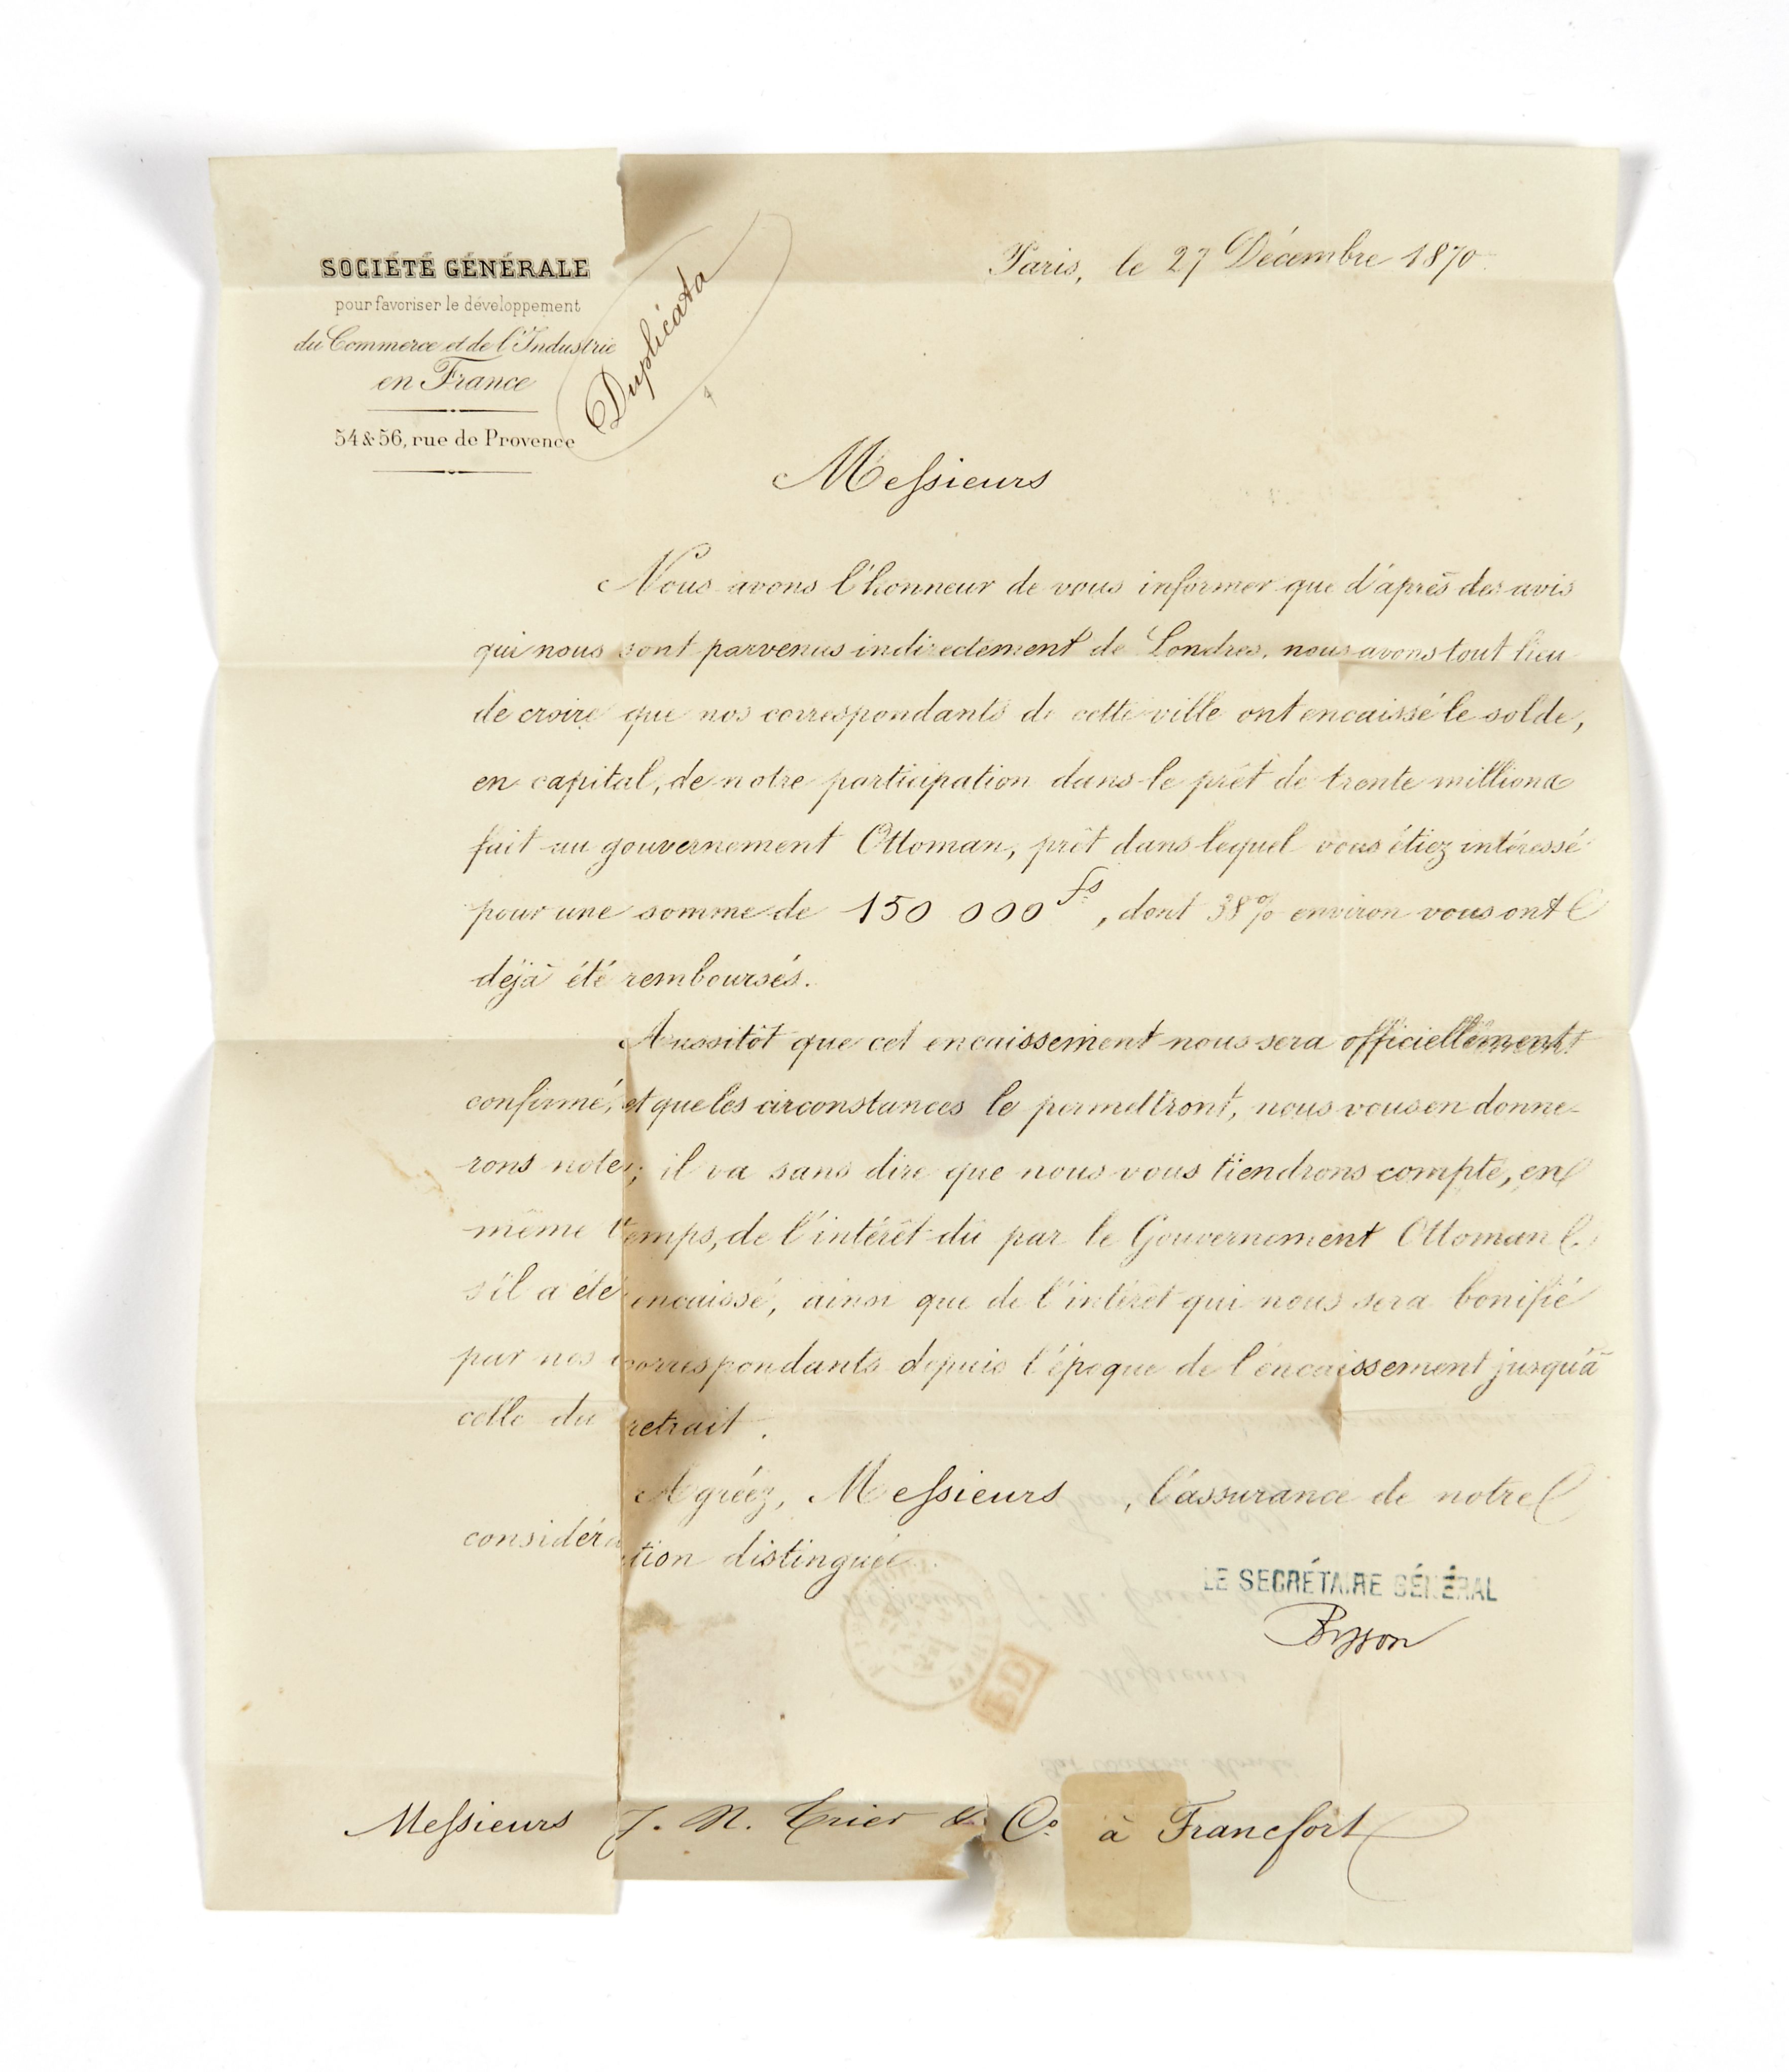 SOCIÉTÉ GÉNÉRALE
pour favoriser le développement
du Commerce et de l'Industrie
en France
54 & 56, rue de Provence
Duplicata
Paris, le 27 Décembre 1870
Messieurs
Nous avons l'honneur de vous informer que d'après des avis
qui nous sont parvenus indirectement de Londres, nous avons tout lieu
de croire que nos correspondants de cette ville ont encaissé le solde,
en capital, de notre participation dans le prêt de trente millions
fait au gouvernement Ottoman, prêt dans lequel vous étiez intéressé
pour une somme de 150 000 fs, dont 38% environ vous ont
déjà été remboursés.
Aussitôt que cet encaissement nous sera officiellement
confirmé, et que les circonstances le permettront, nous vous en donne-
rons note; il va sans dire que nous vous tiendrons compte, en
même temps, de l'intérêt dû par le Gouvernement Ottoman
s'il a été encaissé, ainsi que de l'intérêt qui nous sera bonifié
par nos correspondants depuis l'époque de l'encaissement jusqu'à
celle du retrait.
Agréez, Messieurs, l'assurance de notre
considération distinguée.
LE SECRÉTAIRE GÉNÉRAL
PD
Messieurs J. N. Trier & Co. à Francfort